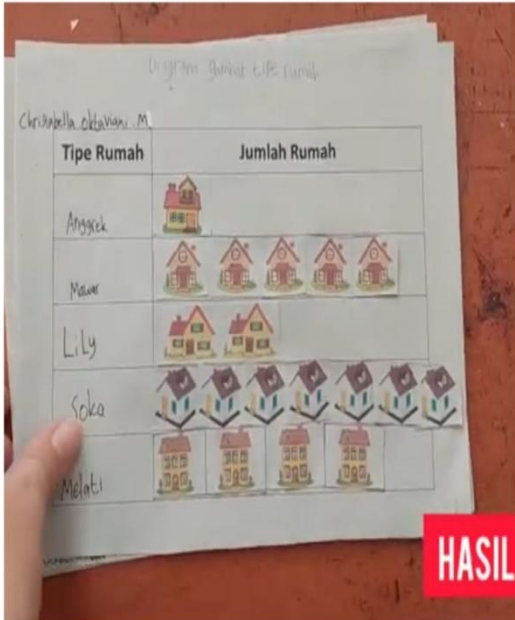 Diagram gambar tipe rumah
Chrisabella oktaviani. M
Tipe Rumah Jumlah Rumah
Anggrek
Mawar
Lily
Soka
Melati
HASIL